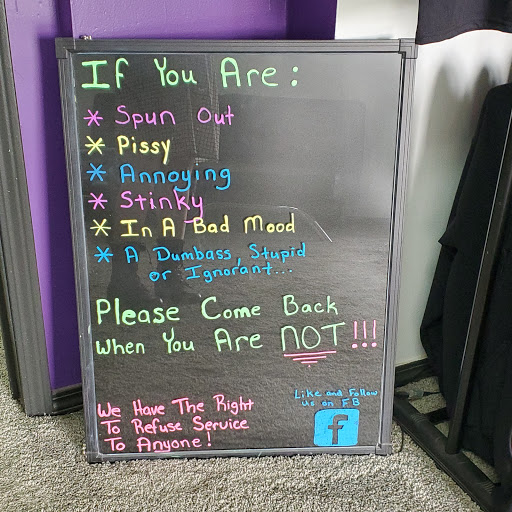 If You Are:
* Spun Out
* Pissy
* Annoying
* Stinky
* In A Bad Mood
* A Dumbass, Stupid
or Ignorant...
Please Come Back
When You Are NOT!!!
We Have The Right
To Refuse Service
To Anyone!
Like and Follow
us on FB
f